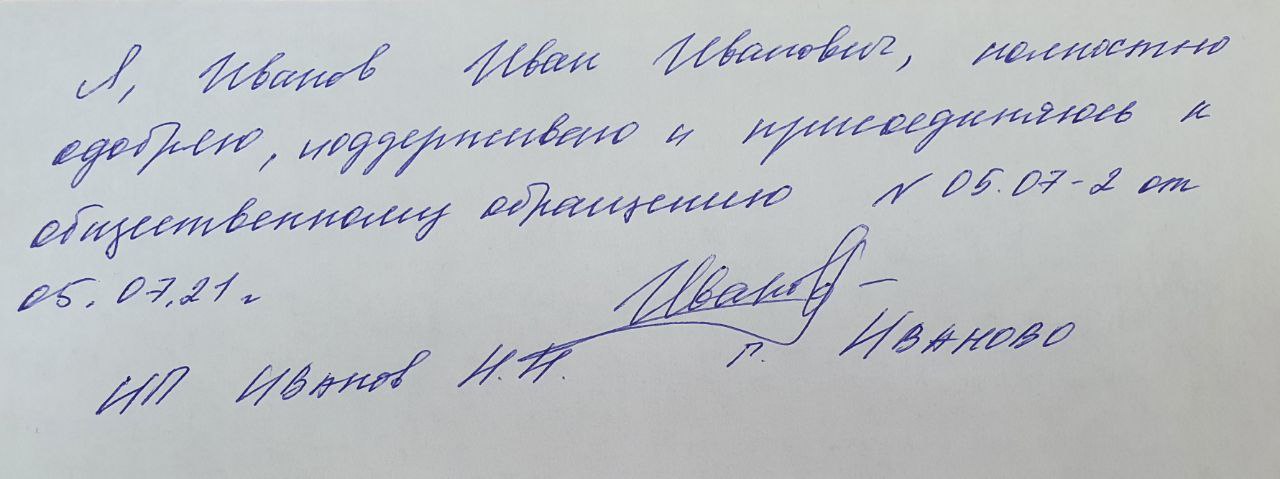 Я, Иванов Иван Иванович, полностью
одобряю, поддерживаю и присоединяюсь к
общественному обращению № 05.07-2 от
05.07.21 г
Иванов
ИП Иванов И.И. г. Иваново